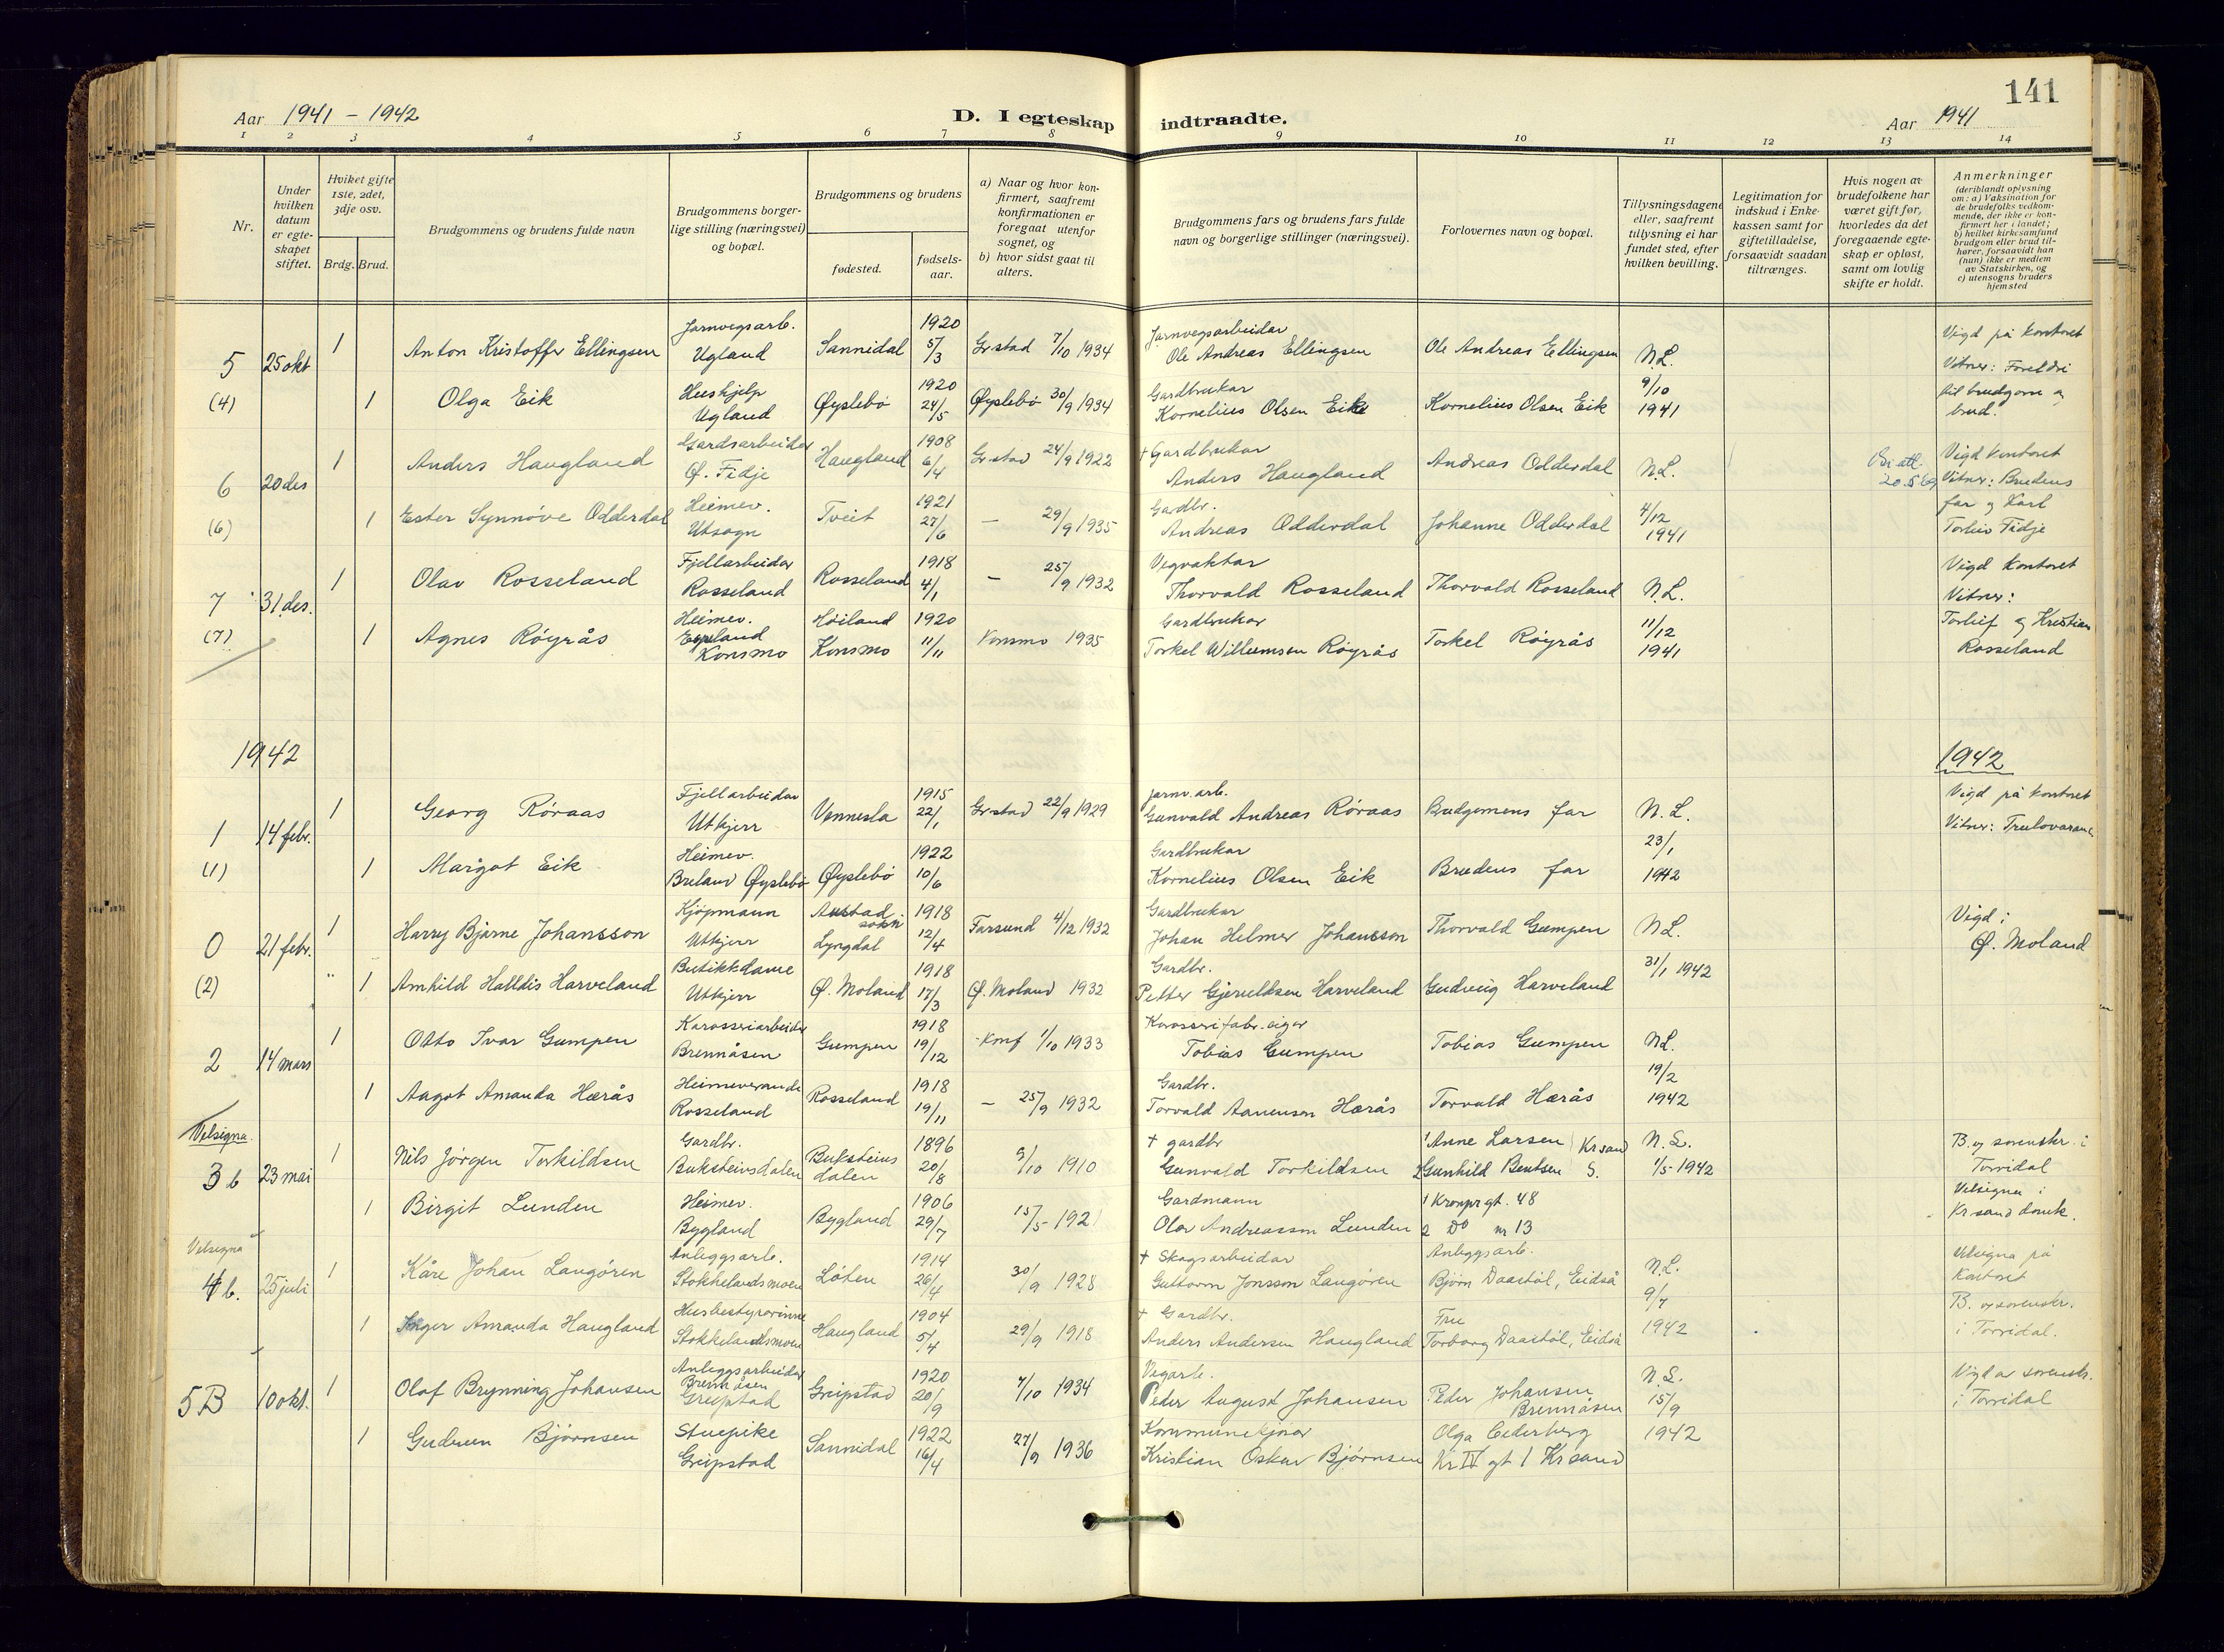 141
Aar 1941 – 1942
D. I egteskap indtraadte.
Aar 1941
1 2 3 4 5 6 7 8 9 10 11 12 13 14
Nr.
Under hvilken datum er egte-skapet stiftet.
Hviket gifte 1ste, 2det, 3dje osv.
Brdg. Brud.
Brudgommens og brudens fulde navn
Brudgommens borger-lige stilling (næringsvei) og bopæl.
Brudgommens og brudens
fødested.
fødsels-aar.
a) Naar og hvor kon-firmert, saafremt konfirmationen er foregaat utenfor sognet, og
b) hvor sidst gaat til alters.
Brudgommens fars og brudens fars fulde navn og borgerlige stillinger (næringsvei).
Forlovernes navn og bopæl.
Tillysningsdagene eller, saafremt tillysning ei har fundet sted, efter hvilken bevilling.
Legitimation for indskud i Enke-kassen samt for giftetilladelse, forsaavidt saadan tiltrænges.
Hvis nogen av brudefolkene har været gift før, hvorledes da det foregaaende egte-skap er opløst, samt om lovlig skifte er holdt.
Anmerkninger
(deriblandt oplysning om: a) Vaksination for de brudefolks vedkom-mende, der ikke er kon-firmert her i landet; b) hvilket kirkesamfund brudgom eller brud til-hører, forsaavidt han (hun) ikke er medlem av Statskirken, og c) utensogns bruders hjemsted
5 25 okt 1 Anton Kristoffer Ellingsen Jarnvegsarb. Ugland Sannidal 1920 5/3 Gr.stad 7/10 1934 Jarnvegsarbeidar Ole Andreas Ellingsen Ole Andreas Ellingsen N.L. Vigd på kontoret
(4) 1 Olga Eik Hushjelp Ugland Øyslebø 1920 24/5 Øyslebø 30/9 1934 Gardbrukar Kornelius Olsen Eik Kornelius Olsen Eik 9/10 1941 Vitner: Foreldri til brudgom og brud.
6 20 des 1 Anders Haugland Gardsarbeidar Ø. Fidje Haugland 1908 6/4 Gr.stad 24/9 1922 + Gardbrukar Anders Haugland Andreas Odderdal N.L. 20.5.69 Vigd kontoret
(6) 1 Ester Synnøve Odderdal Heimev. Utsogn Tveit 1921 27/6 — 29/9 1935 Gardbr. Andreas Odderdal Johanne Odderdal 4/12 1941 Vitner: Brudens far og Karl Torleiv Fidje
7 31 des. 1 Olav Rosseland Fjellarbeidar Rosseland Rosseland 1918 4/1 — 25/9 1932 Vegvaktar Thorvald Rosseland Thorvald Rosseland N.L. Vigd kontoret
(7) 1 Agnes Røyrås Heimev. Konsmo Høiland Konsmo 1920 11/11 Konsmo 1935 Gardbrukar Torkel Willumsen Røyrås Torkel Røyrås 11/12 1941 Vitner: Torleif og Kristian Rosseland
1942
1942
1 14 febr. 1 Georg Røraas Fjellarbeidar Utkjerr Vennesla 1915 22/1 Gr.stad 22/9 1929 jarnv.arb. Gunvald Andreas Røraas Brudgomens far N.L. Vigd på kontoret
(1) 1 Margot Eik Heimev. Breland Øyslebø Øyslebø 1922 10/6 Gardbrukar Kornelius Olsen Eik Brudens far 23/1 1942 Vitner: Trulovarane
0 21 febr. 1 Harry Bjarne Johansson Kjøpmann Utkjerr Austad sokn Lyngdal 1918 12/4 Farsund 4/12 1932 Gardbrukar Johan Helmer Johansson Thorvald Gumpen N.L. Vigd i Ø. Moland
(2) " 1 Arnhild Halldis Harveland Butikkdame Utkjerr Ø. Moland 1918 17/3 Ø. Moland 1932 Gardbr. Petter Gjeruldsen Harveland Gudveig Harveland 31/1 1942
2 14 mars 1 Otto Ivar Gumpen Karosseriarbeidar Brennåsen Gumpen 1918 19/12 Konf 1/10 1933 Karosserifabr.eigar Tobias Gumpen Tobias Gumpen N.L.
1 Aagot Amanda Hærås Heimeverande Rosseland Rosseland 1918 19/11 — 25/9 1932 Gardbr. Torvald Aanensen Hærås Torvald Hærås 19/2 1942
Velsigna.
3 b 23 mai 1 Nils Jørgen Torkildsen Gardbr. Buksteinsdalen Buksteins dalen 1896 20/8 9/10 1910 + gardbr Gunvald Torkildsen 1 Anne Larsen 2 Gunhild Bentsen Krsand S. N.L. 1/5-1942 B. og sorenskr. i Torridal
1 Birgit Lunden Heimev. Bygland Bygland 1906 29/7 15/5-1921 Gardmann Olav Andreasson Lunden 1 Kronpr gt. 48 2 Do nr 13 Velsigna i Kr sand domk.
Velsigna
4 b. 25 juli 1 Kåre Johan Langøren Anleggsarb. Stokkelandsmoen Løten 1914 26/4 30/9 1928 + Skogsarbeidar Guttorm Jonsson Langøren Anleggsarb. Bjørn Daastøl, Eidså N.L. Velsigna på Kontoret
1 Inger Amanda Haugland Husbestyrerinne Stokkelandsmoen Haugland 1904 5/4 29/9 1918 + Gardbr. Anders Andersen Haugland Fru Torborg Daastøl, Eidså 9/7 1942 B. og sorenskr. i Torridal.
5 B 10 okt. 1 Olaf Brynning Johansen Anleggsarbeidar Brennåsen Greipstad Greipstad 1920 20/9 7/10 1934 Vegarb. Peder August Johansen Peder Johansen Brennåsen N.L. Vigd av sorenskr. i Torridal
1 Gudrun Bjørnsen Stuepike Greipstad Sannidal 1922 16/4 27/9 1936 Kristian Oskar Bjørnsen Olga Cederberg Kr IV gt 1 Krsand 15/9 1942